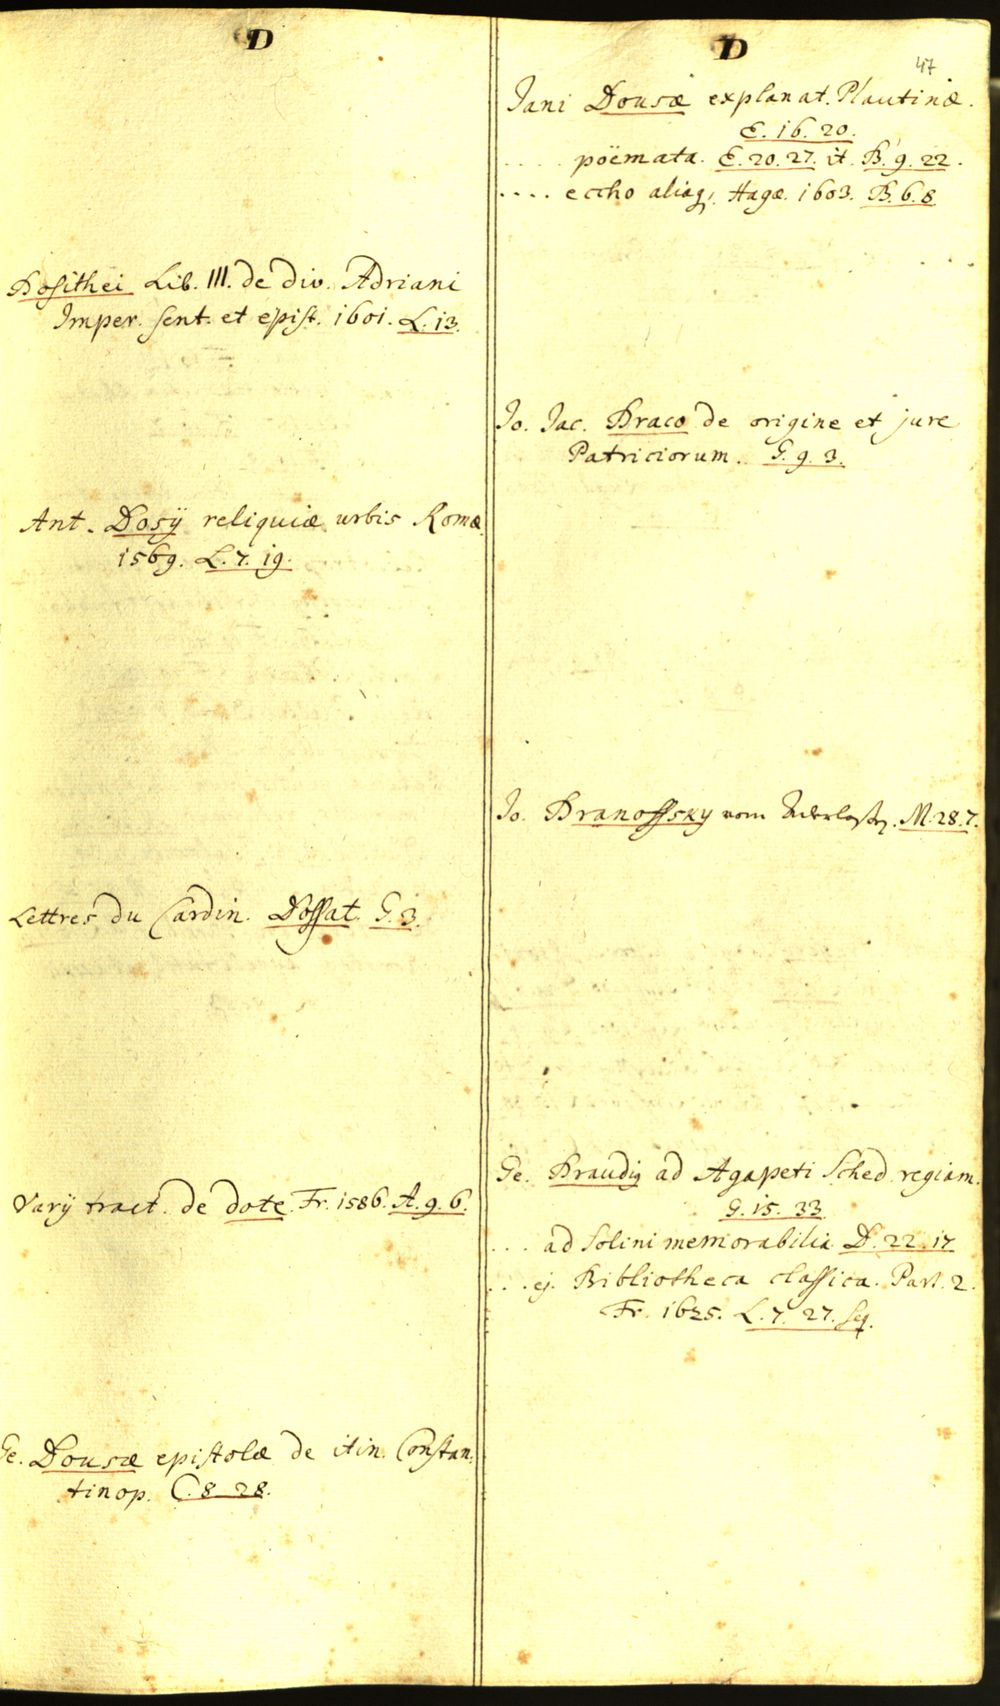 D
Dosithei Lib. III. de div. Adriani
Imper. sent. et epist. 1601. L. 13.
Ant. Dosÿ reliquiæ urbis Romæ
1569. L. 7. 19.
Lettres du Cardin. Dossat. G. 3.
Varÿ tract. de dote Fr. 1586. A. 9. 6.
Ge. Dousæ epistolæ de itin. Constan
tinop. C. 8. 28.
D
47
Jani Dousæ explanat. Plautinæ.
E. 16. 20.
.... poëmata. E. 20. 27. it. B. 9. 22.
.... eccho aliaq, Hagæ. 1603. B. 6. 8
Jo. Jac. Draco de origine et jure
Patriciorum. G. 9. 3.
Jo. Dranoffsky vom M. 28. 7.
Ge. Draudig ad Agapeti Sched. regiam.
G. 15. 33
... ad Solini memorabilia D. 22. 17
... ej. Bibliotheca classica. Part. 2.
Fr. 1625. L. 7. 27. seq.